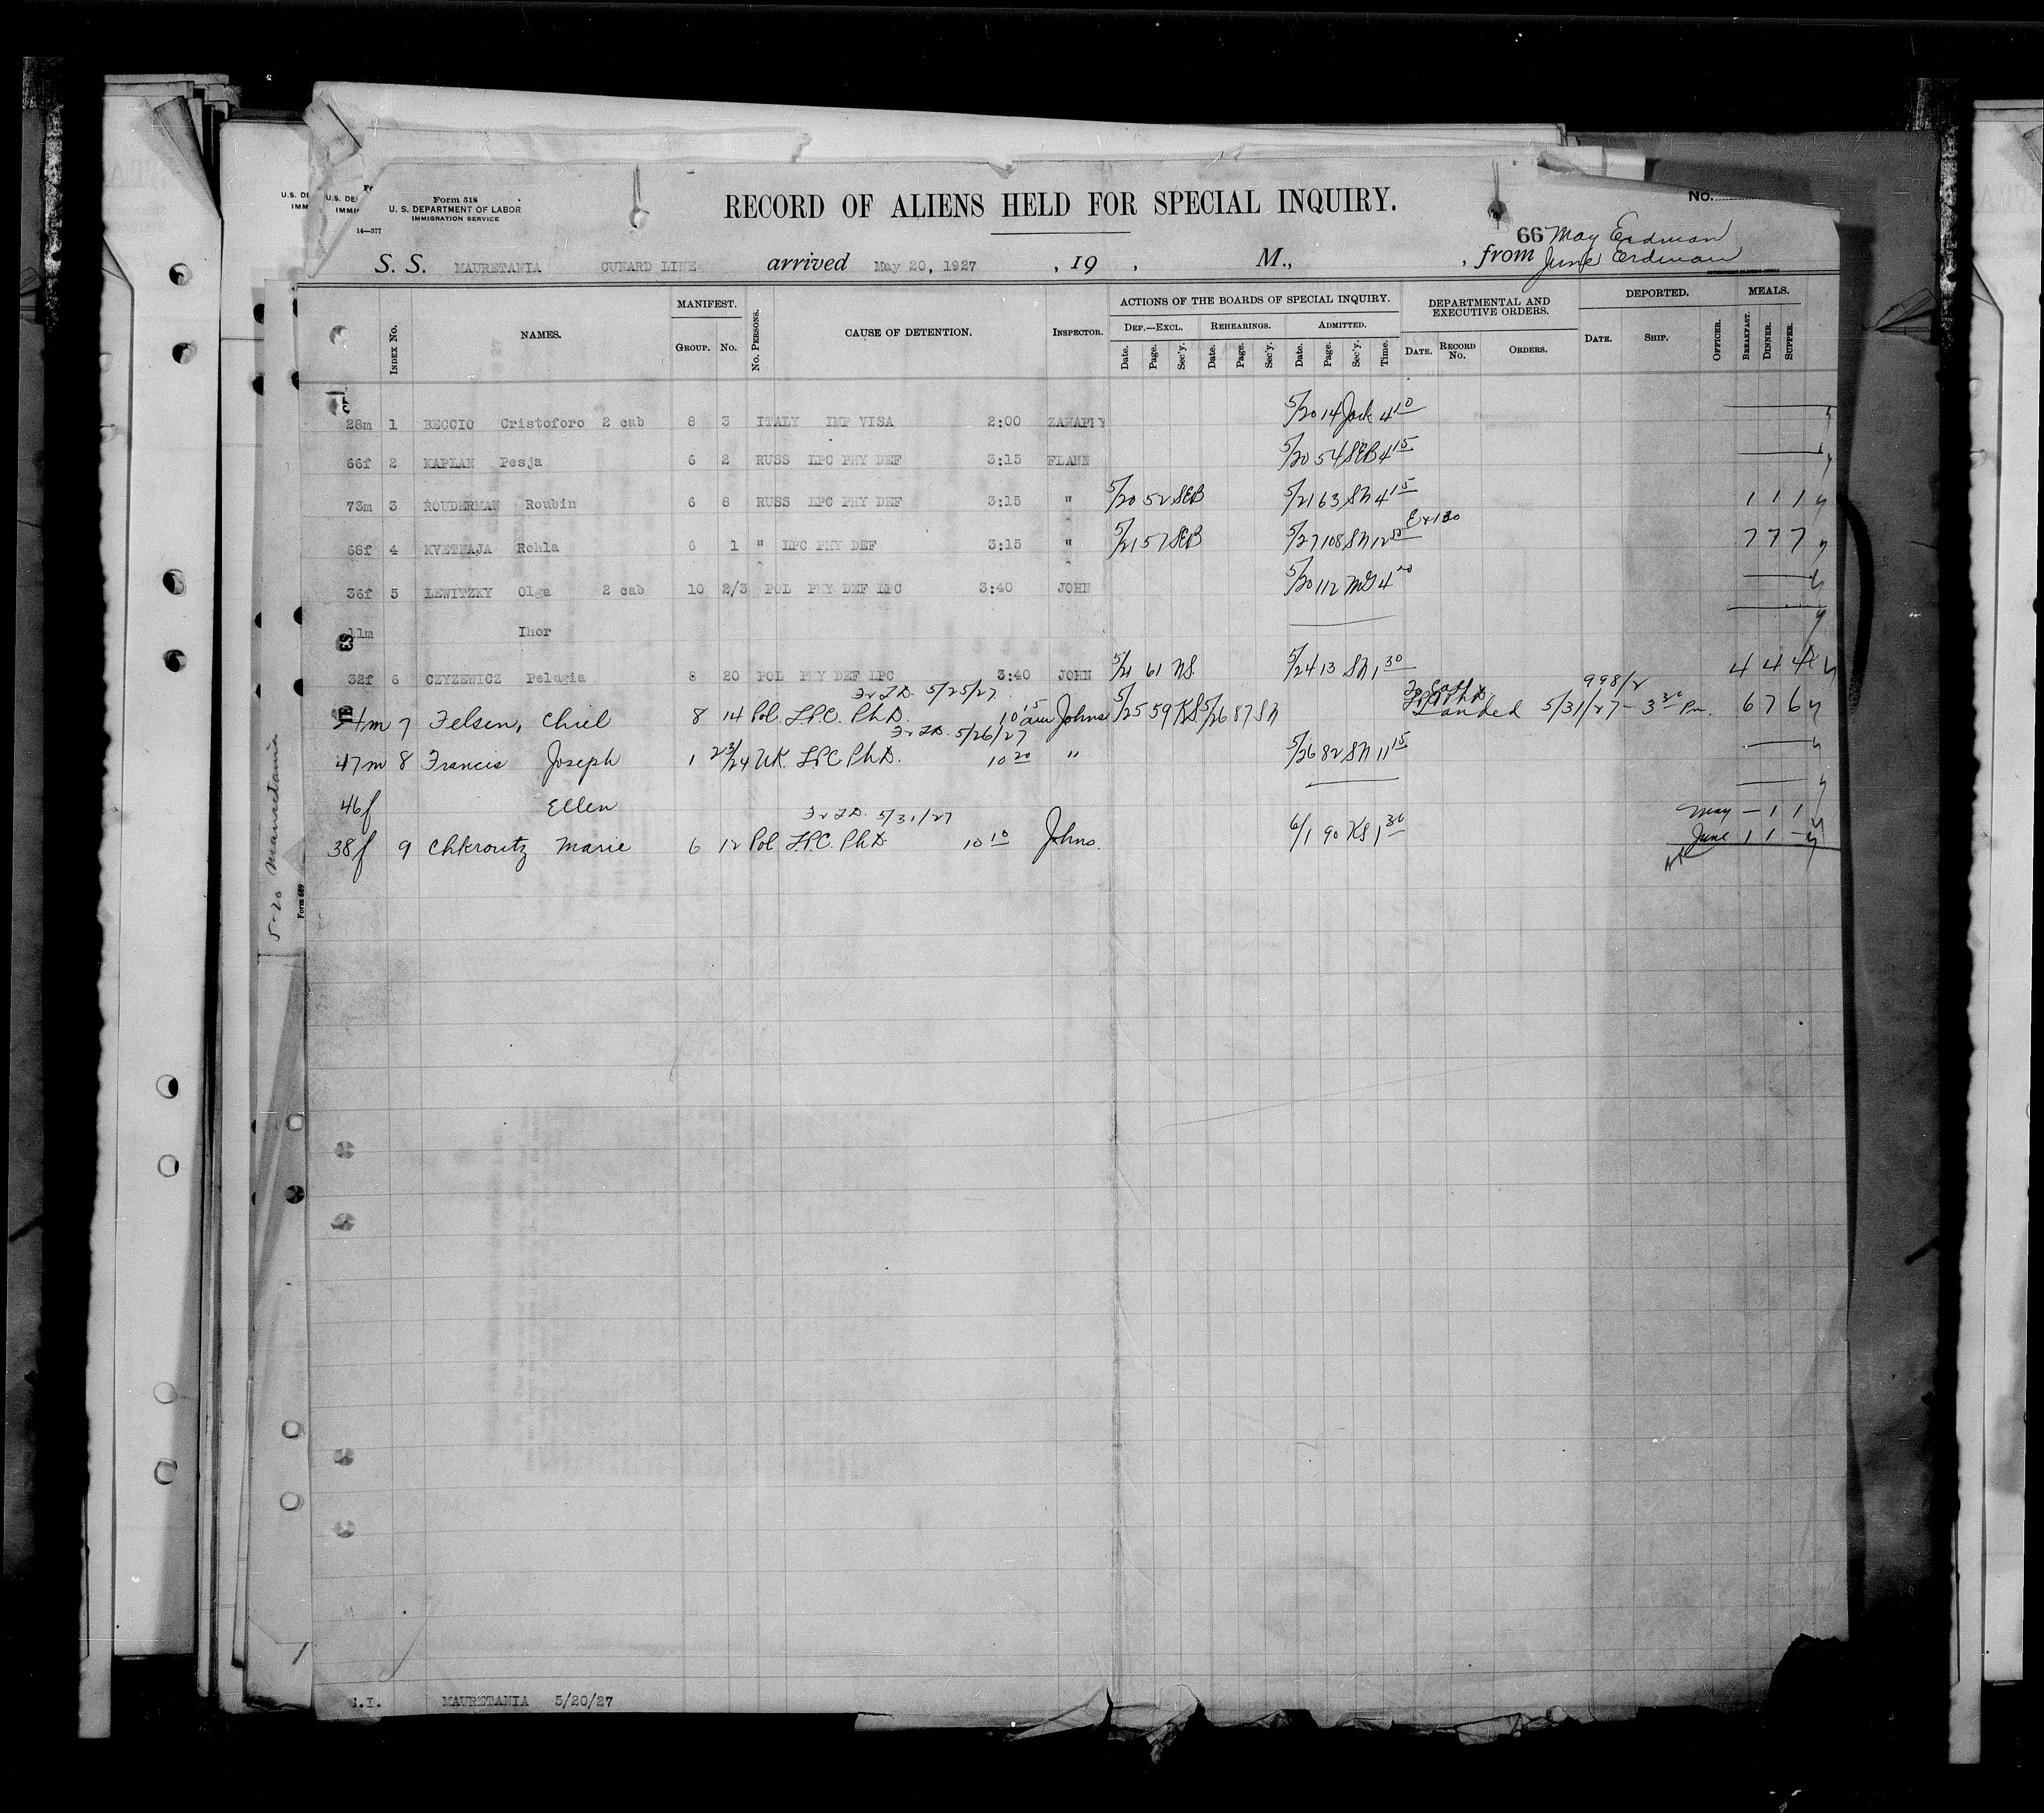 U.S. DE
U.S. DE
IMM
IMMI
Form 518
U. S. DEPARTMENT OF LABOR
IMMIGRATION SERVICE
14—377
RECORD OF ALIENS HELD FOR SPECIAL INQUIRY.
No.
66 May Erdman
June Erdman
S. S. MAURETANIA CUNARD LINE arrived May 20, 1927 , 19 , M., , from
INDEX No. NAMES. MANIFEST. GROUP. No. No. PERSONS. CAUSE OF DETENTION. INSPECTOR. ACTIONS OF THE BOARDS OF SPECIAL INQUIRY. DEPARTMENTAL AND EXECUTIVE ORDERS. DEPORTED. MEALS.
DEF.—EXCL. REHEARINGS. ADMITTED.
Date. Page. Sec'y. Date. Page. Sec'y. Date. Page. Sec'y. Time. DATE. RECORD No. ORDERS. DATE. SHIP. OFFICER. BREAKFAST. DINNER. SUPPER.
28m 1 BECCIO Cristoforo 2 cab 8 3 ITALY IMP VISA 2:00 5/20 14 Jack 4 10
66f 2 KAPLAN Pesja 6 2 RUSS LPC PHY DEF 3:15 FLANN 5/20 54 SEB 4 15
73m 3 ROUDERMAN Roubin 6 8 RUSS LPC PHY DEF 3:15 " 5/20 52 SEB 5/21 63 SN 4 15 1 1 1
68f 4 KVETNAJA Rohla 6 1 " LPC PHY DEF 3:15 " 5/21 57 SEB 5/27 108 SN 12 7 7 7
36f 5 LEWITZKY Olga 2 cab 10 2/3 POL PHY DEF LPC 3:40 JOHN 5/20 112 McG 4
11m Ihor
32f 6 CZYZEWICZ Pelagia 8 20 POL PHY DEF LPC 3:40 JOHN 5/21 61 NS 5/24 13 SN 1 30 4 4 4
Fr T.D. 5/25/27
998/2
7 Felsen, Chiel 8 14 Pol. L.P.C. Ph D. 10 15 am Johns 5/25 59 KS 5/26 87 SN Landed 5/31/27 - 3 30 Pm. 6 7 6
Fr T.D. 5/26/27
47m 8 Francis Joseph 1 23/24 UK. LPC Ph D. 10 20 " 5/26 82 SN 11 15
46f Ellen
Fr T.D. 5/31/27
May - 1 1
38f 9 Chkroutz Marie 6 12 Pol L.P.C. Ph D 10 10 Johns. 6/1 90 KS 1 30 June 1 1 -
5-20 Mauretania
Form 689
S.I. MAURETANIA 5/20/27